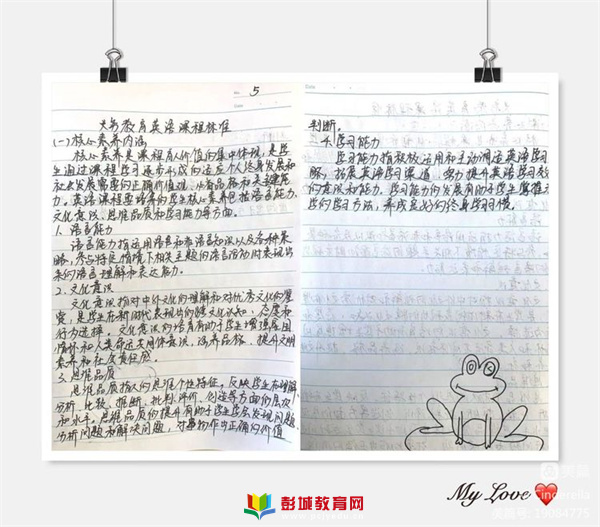 5
义务教育英语课程标准
(一)核心素养内涵
核心素养是课程育人价值的集中体现,是学
生通过课程学习逐步形成的适应个人终身发展和
社会发展需要的正确价值观、必备品格和关键能
力。英语课程要培养的学生核心素养包括语言能力、
文化意识、思维品质和学习能力等方面。
1. 语言能力
语言能力指运用语言和非语言知识以及各种策
略,参与特定情境下相关主题的语言活动时表现出
来的语言理解和表达能力。
2. 文化意识
文化意识指对中外文化的理解和对优秀文化的鉴
赏,是学生在新时代表现出的跨文化认知、态度和
行为选择。文化意识的培育有助于学生增强家国
情怀和人类命运共同体意识,涵养品格,提升文明
素养和社会责任感。
3. 思维品质
思维品质指人的思维个性特征,反映学生在理解、
分析、比较、推断、批判、评价、创造等方面的层次
和水平。思维品质的提升有助于学生学会发现问题、
分析问题和解决问题,对事物作出正确的价值
判断。
4. 学习能力
学习能力指积极运用和主动调适英语学习策
略、拓展英语学习渠道、努力提升英语学习效率
的意识和能力。学习能力的发展有助于学生掌握科
学的学习方法,养成良好的终身学习习惯。
My Love
彭城教育网
美篇
Cinderella
美篇号: 19084775